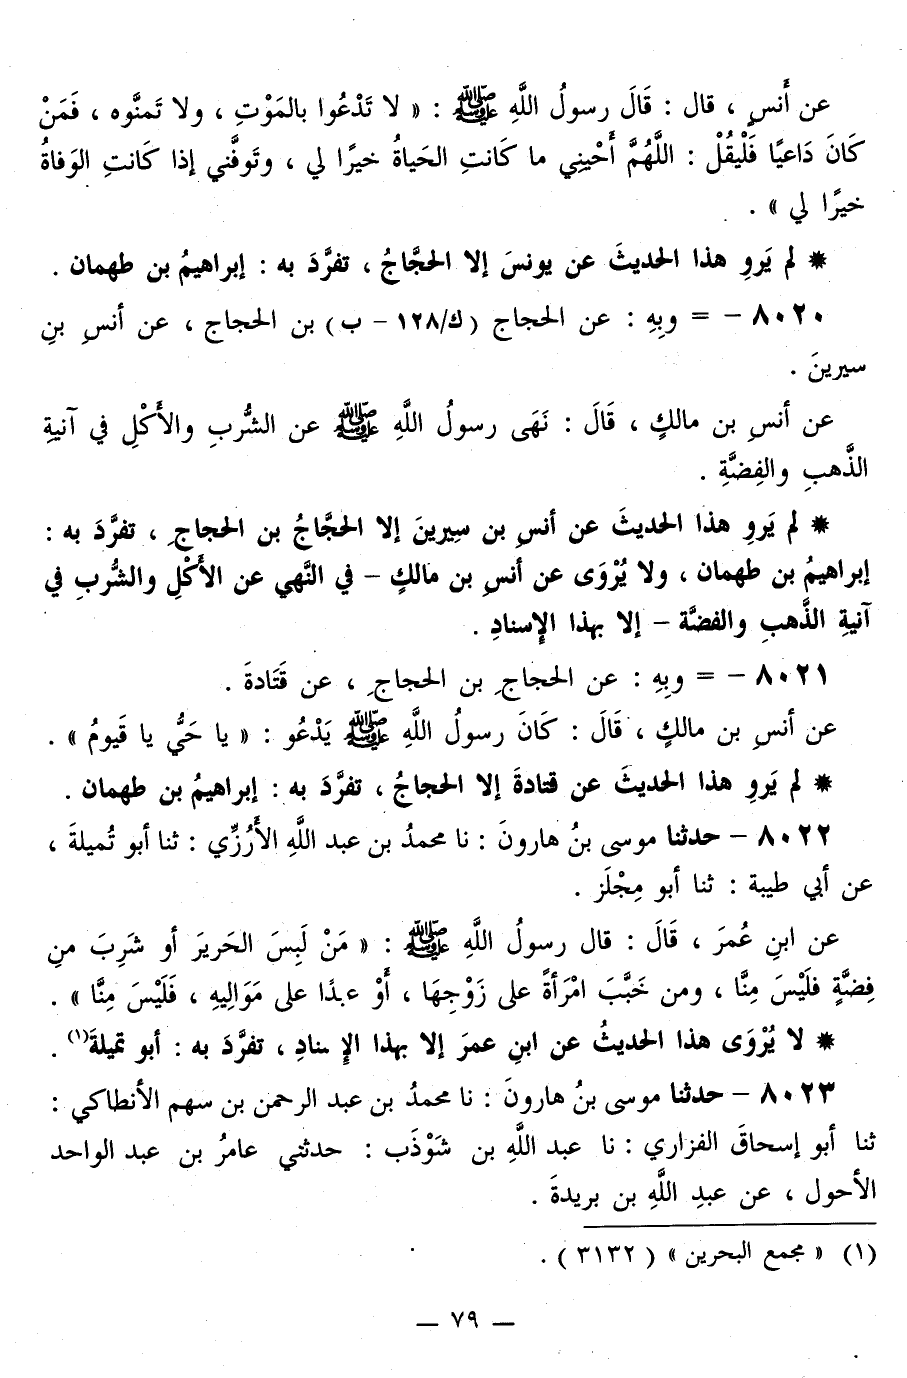 عن أَنسٍ ، قال : قَالَ رسولُ اللَّهِ ﷺ : « لا تَدْعُوا بالمَوْتِ ، ولا تَمنَّوه ، فَمَنْ
كَانَ دَاعيًا فَلْيقُلْ : اللَّهُمَّ أَحْينِي ما كَانتِ الحَياةُ خيرًا لي ، وتَوفَّني إذا كَانتِ الوَفاةُ
خيرًا لي » .
* لم يَروِ هذا الحديثَ عن يونسَ إلا الحجَّاجُ ، تفرَّدَ به : إبراهيمُ بن طهمان .
٨٠٢٠ – = وبِهِ : عن الحجاج (ك/١٢٨ – ب) بن الحجاج ، عن أنسِ بنِ
سيرينَ .
عن أنسِ بن مالكٍ ، قَالَ : نَهَى رسولُ اللَّهِ ﷺ عن الشُّربِ والأَكْلِ في آنيةِ
الذَّهبِ والفِضَّةِ .
* لم يَروِ هذا الحديثَ عن أنسِ بن سِيرينَ إلا الحجَّاجُ بن الحجاجِ ، تفرَّدَ به :
إبراهيمُ بن طهمان ، ولا يُرْوَى عن أنسِ بن مالكٍ – في النَّهي عن الأَكْلِ والشُّربِ في
آنيةِ الذَّهبِ والفضَّة – إلا بهذا الإِسنادِ .
٨٠٢١ – = وبِهِ : عن الحجاجِ بن الحجاجِ ، عن قَتَادةَ .
عن أنسِ بن مالكٍ ، قَالَ : كَانَ رسولُ اللَّهِ ﷺ يَدْعُو : « يا حَيُّ يا قَيومُ » .
* لم يَروِ هذا الحديثَ عن قتادةَ إلا الحجاجُ ، تفرَّدَ به : إبراهيمُ بن طهمان .
٨٠٢٢ – حدثنا موسى بنُ هارونَ : نا محمدُ بن عبد اللَّهِ الأَرُزِّي : ثنا أبو تُميلةَ ،
عن أبي طيبة : ثنا أبو مِجْلَز .
عن ابنِ عُمرَ ، قَالَ : قال رسولُ اللَّهِ ﷺ : « مَنْ لَبِسَ الحَريرَ أو شَرِبَ منِ
فِضَّةٍ فلَيْسَ مِنَّا ، ومن خَبَّبَ امْرَأةً على زَوْجِهَا ، أَوْ عبدًا على مَوَالِيهِ ، فَلَيْسَ مِنَّا » .
* لا يُرْوَى هذا الحديثُ عن ابنِ عمرَ إلا بهذا الإِسنادِ ، تفرَّدَ به : أبو تميلةَ(١) .
٨٠٢٣ – حدثنا موسى بنُ هارونَ : نا محمدُ بن عبد الرحمن بن سهم الأنطاكي :
ثنا أبو إسحاقَ الفزاري : نا عبد اللَّهِ بن شَوْذَب : حدثني عامرُ بن عبد الواحد
الأحول ، عن عبدِ اللَّهِ بن بريدةَ .
(١) « مجمع البحرين » (٣١٣٢) .
— ٧٩ —